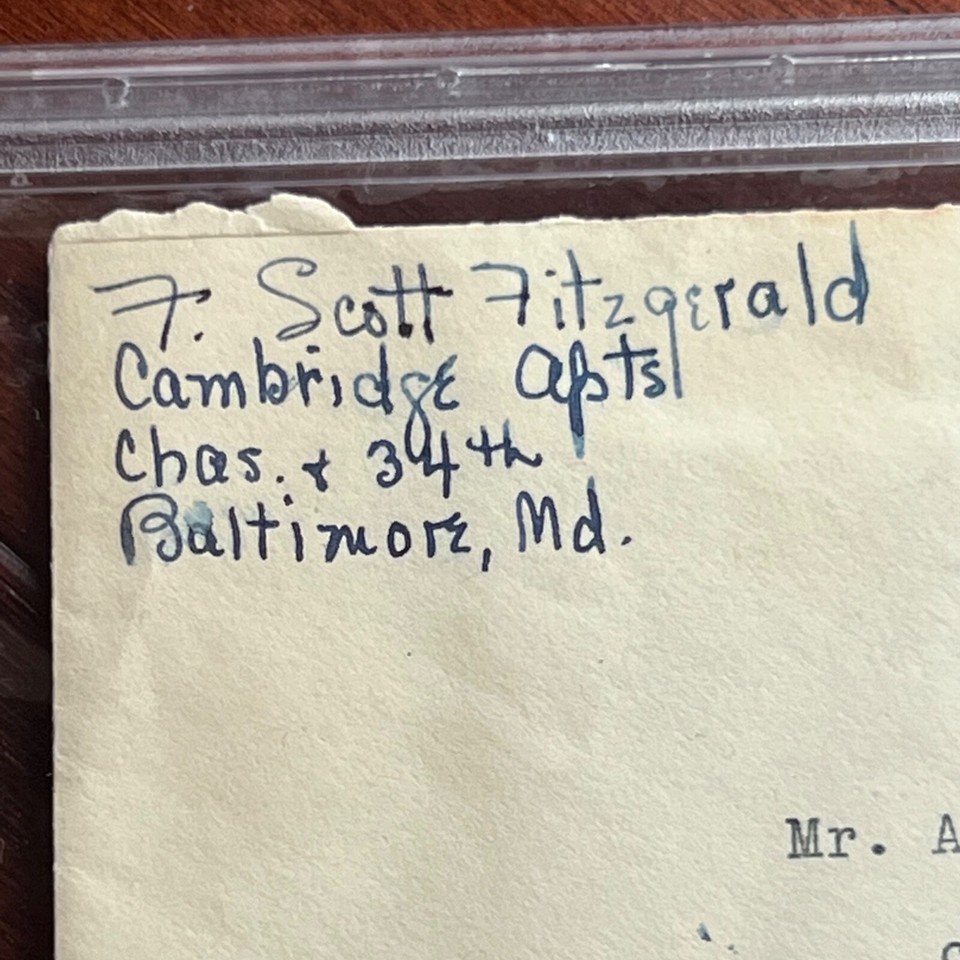 F. Scott Fitzgerald
Cambridge Apts
Chas. + 34th
Baltimore, Md.
Mr. A